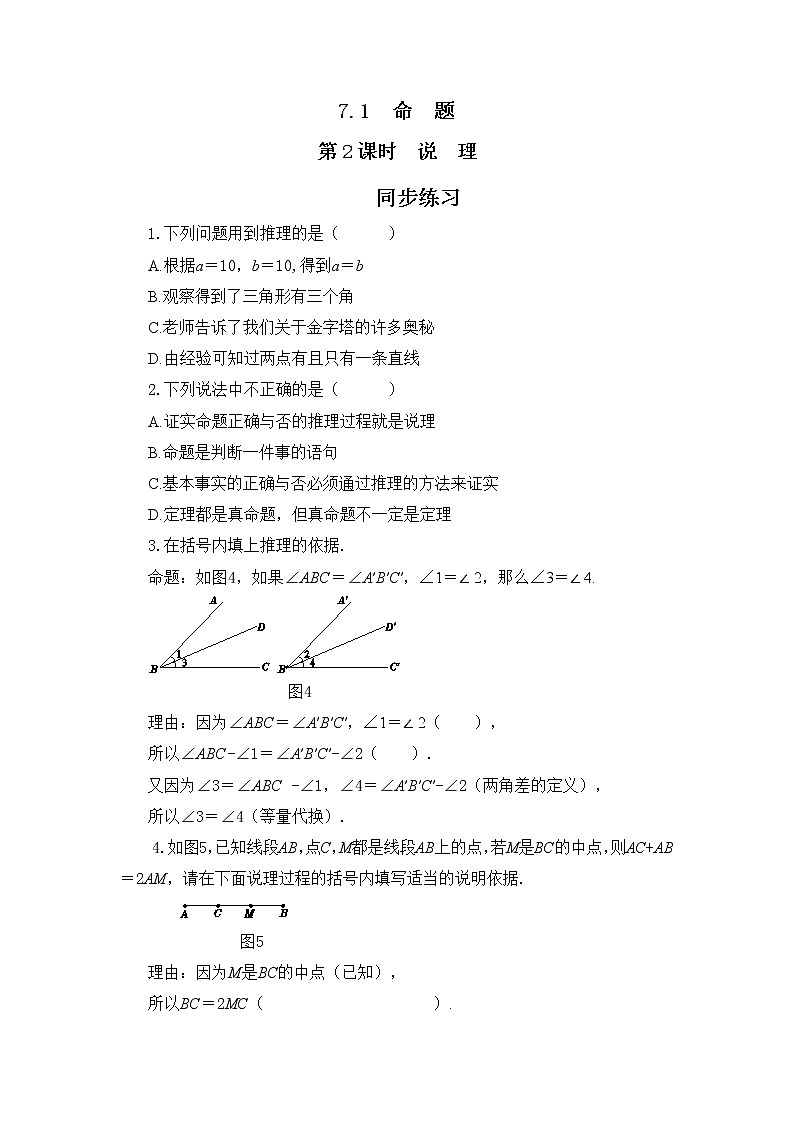 7.1 命 题
第2课时 说 理
同步练习
1.下列问题用到推理的是( )
A.根据a=10，b=10,得到a=b
B.观察得到了三角形有三个角
C.老师告诉了我们关于金字塔的许多奥秘
D.由经验可知过两点有且只有一条直线
2.下列说法中不正确的是( )
A.证实命题正确与否的推理过程就是说理
B.命题是判断一件事的语句
C.基本事实的正确与否必须通过推理的方法来证实
D.定理都是真命题，但真命题不一定是定理
3.在括号内填上推理的依据.
命题：如图4，如果∠ABC=∠A′B′C′，∠1=∠2，那么∠3=∠4.
A A′
D D′
1 2
3 4
B C B′ C′
图4
理由：因为∠ABC=∠A′B′C′，∠1=∠2( )，
所以∠ABC-∠1=∠A′B′C′-∠2( ).
又因为∠3=∠ABC -∠1，∠4=∠A′B′C′-∠2(两角差的定义)，
所以∠3=∠4(等量代换).
4.如图5,已知线段AB,点C,M都是线段AB上的点,若M是BC的中点,则AC+AB
=2AM，请在下面说理过程的括号内填写适当的说明依据.
A C M B
图5
理由：因为M是BC的中点(已知)，
所以BC=2MC( ).